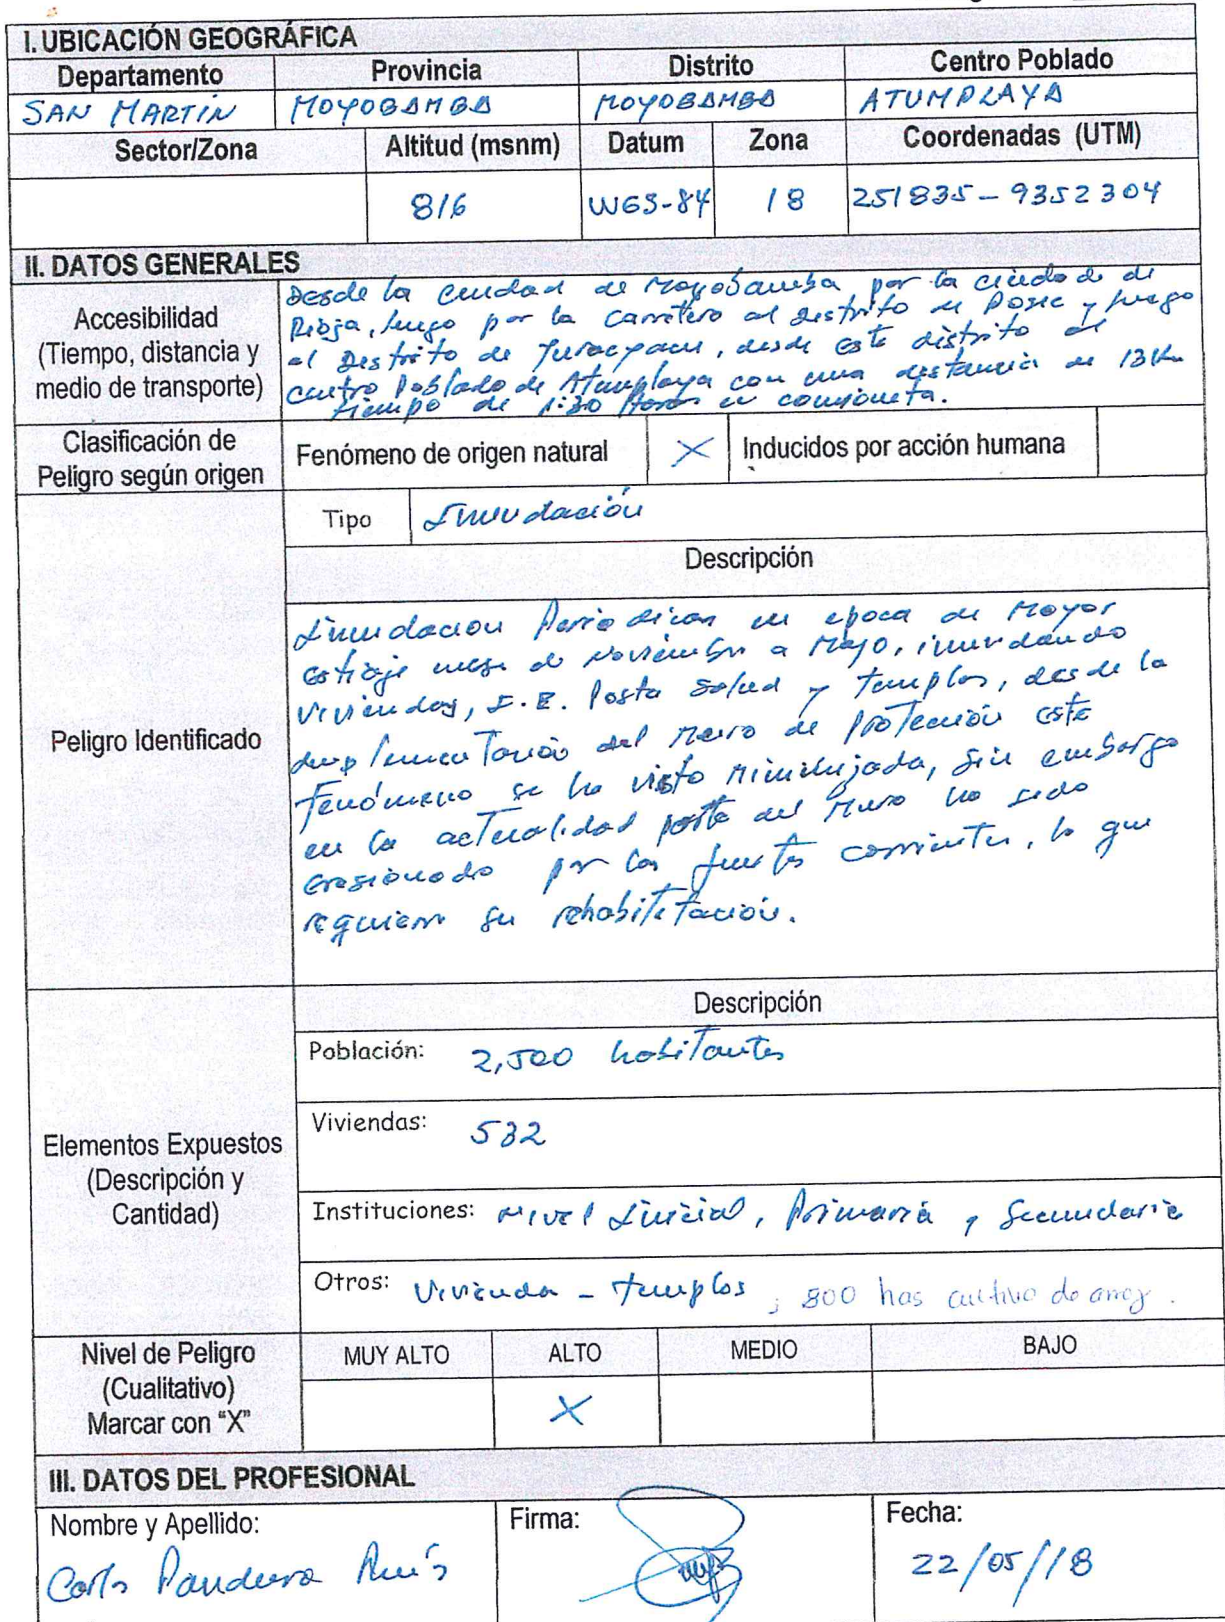 I. UBICACIÓN GEOGRÁFICA
Departamento Provincia Distrito Centro Poblado
SAN MARTÍN MOYOBAMBA MOYOBAMBA ATUMPLAYA
Sector/Zona Altitud (msnm) Datum Zona Coordenadas (UTM)
816 WGS-84 18 251835-9352304
II. DATOS GENERALES
Accesibilidad
(Tiempo, distancia y
medio de transporte)
Desde la ciudad de Moyobamba por la ciudad de
Rioja, luego por la carretera al distrito de Posic y luego
al Distrito de Yuracyacu, desde este distrito al
centro Poblado de Atumplaya con una distancia de 13Km
tiempo de 1:30 Horas en camioneta.
Clasificación de
Peligro según origen
Fenómeno de origen natural X Inducidos por acción humana
Peligro Identificado
Tipo Inundación
Descripción
Inundacion Periodicas en epoca de Mayor
estiaje meses de Noviembre a Mayo, inundando
viviendas, I.E. Posta Salud y templos, desde la
Implementación del Muro de Protección este
fenómeno se ha visto, sin embargo
en la actualidad parte del Muro ha sido
erosionado por las fuertes corrientes, lo que
requiere su rehabilitación.
Elementos Expuestos
(Descripción y
Cantidad)
Descripción
Población: 2,500 habitantes
Viviendas: 532
Instituciones: Nivel Inicial, Primaria y Secundaria
Otros: Vivienda - templos ; 800 has cultivo de arroz.
Nivel de Peligro
(Cualitativo)
Marcar con "X"
MUY ALTO ALTO MEDIO BAJO
X
III. DATOS DEL PROFESIONAL
Nombre y Apellido: Firma: Fecha:
Carlos 22/05/18